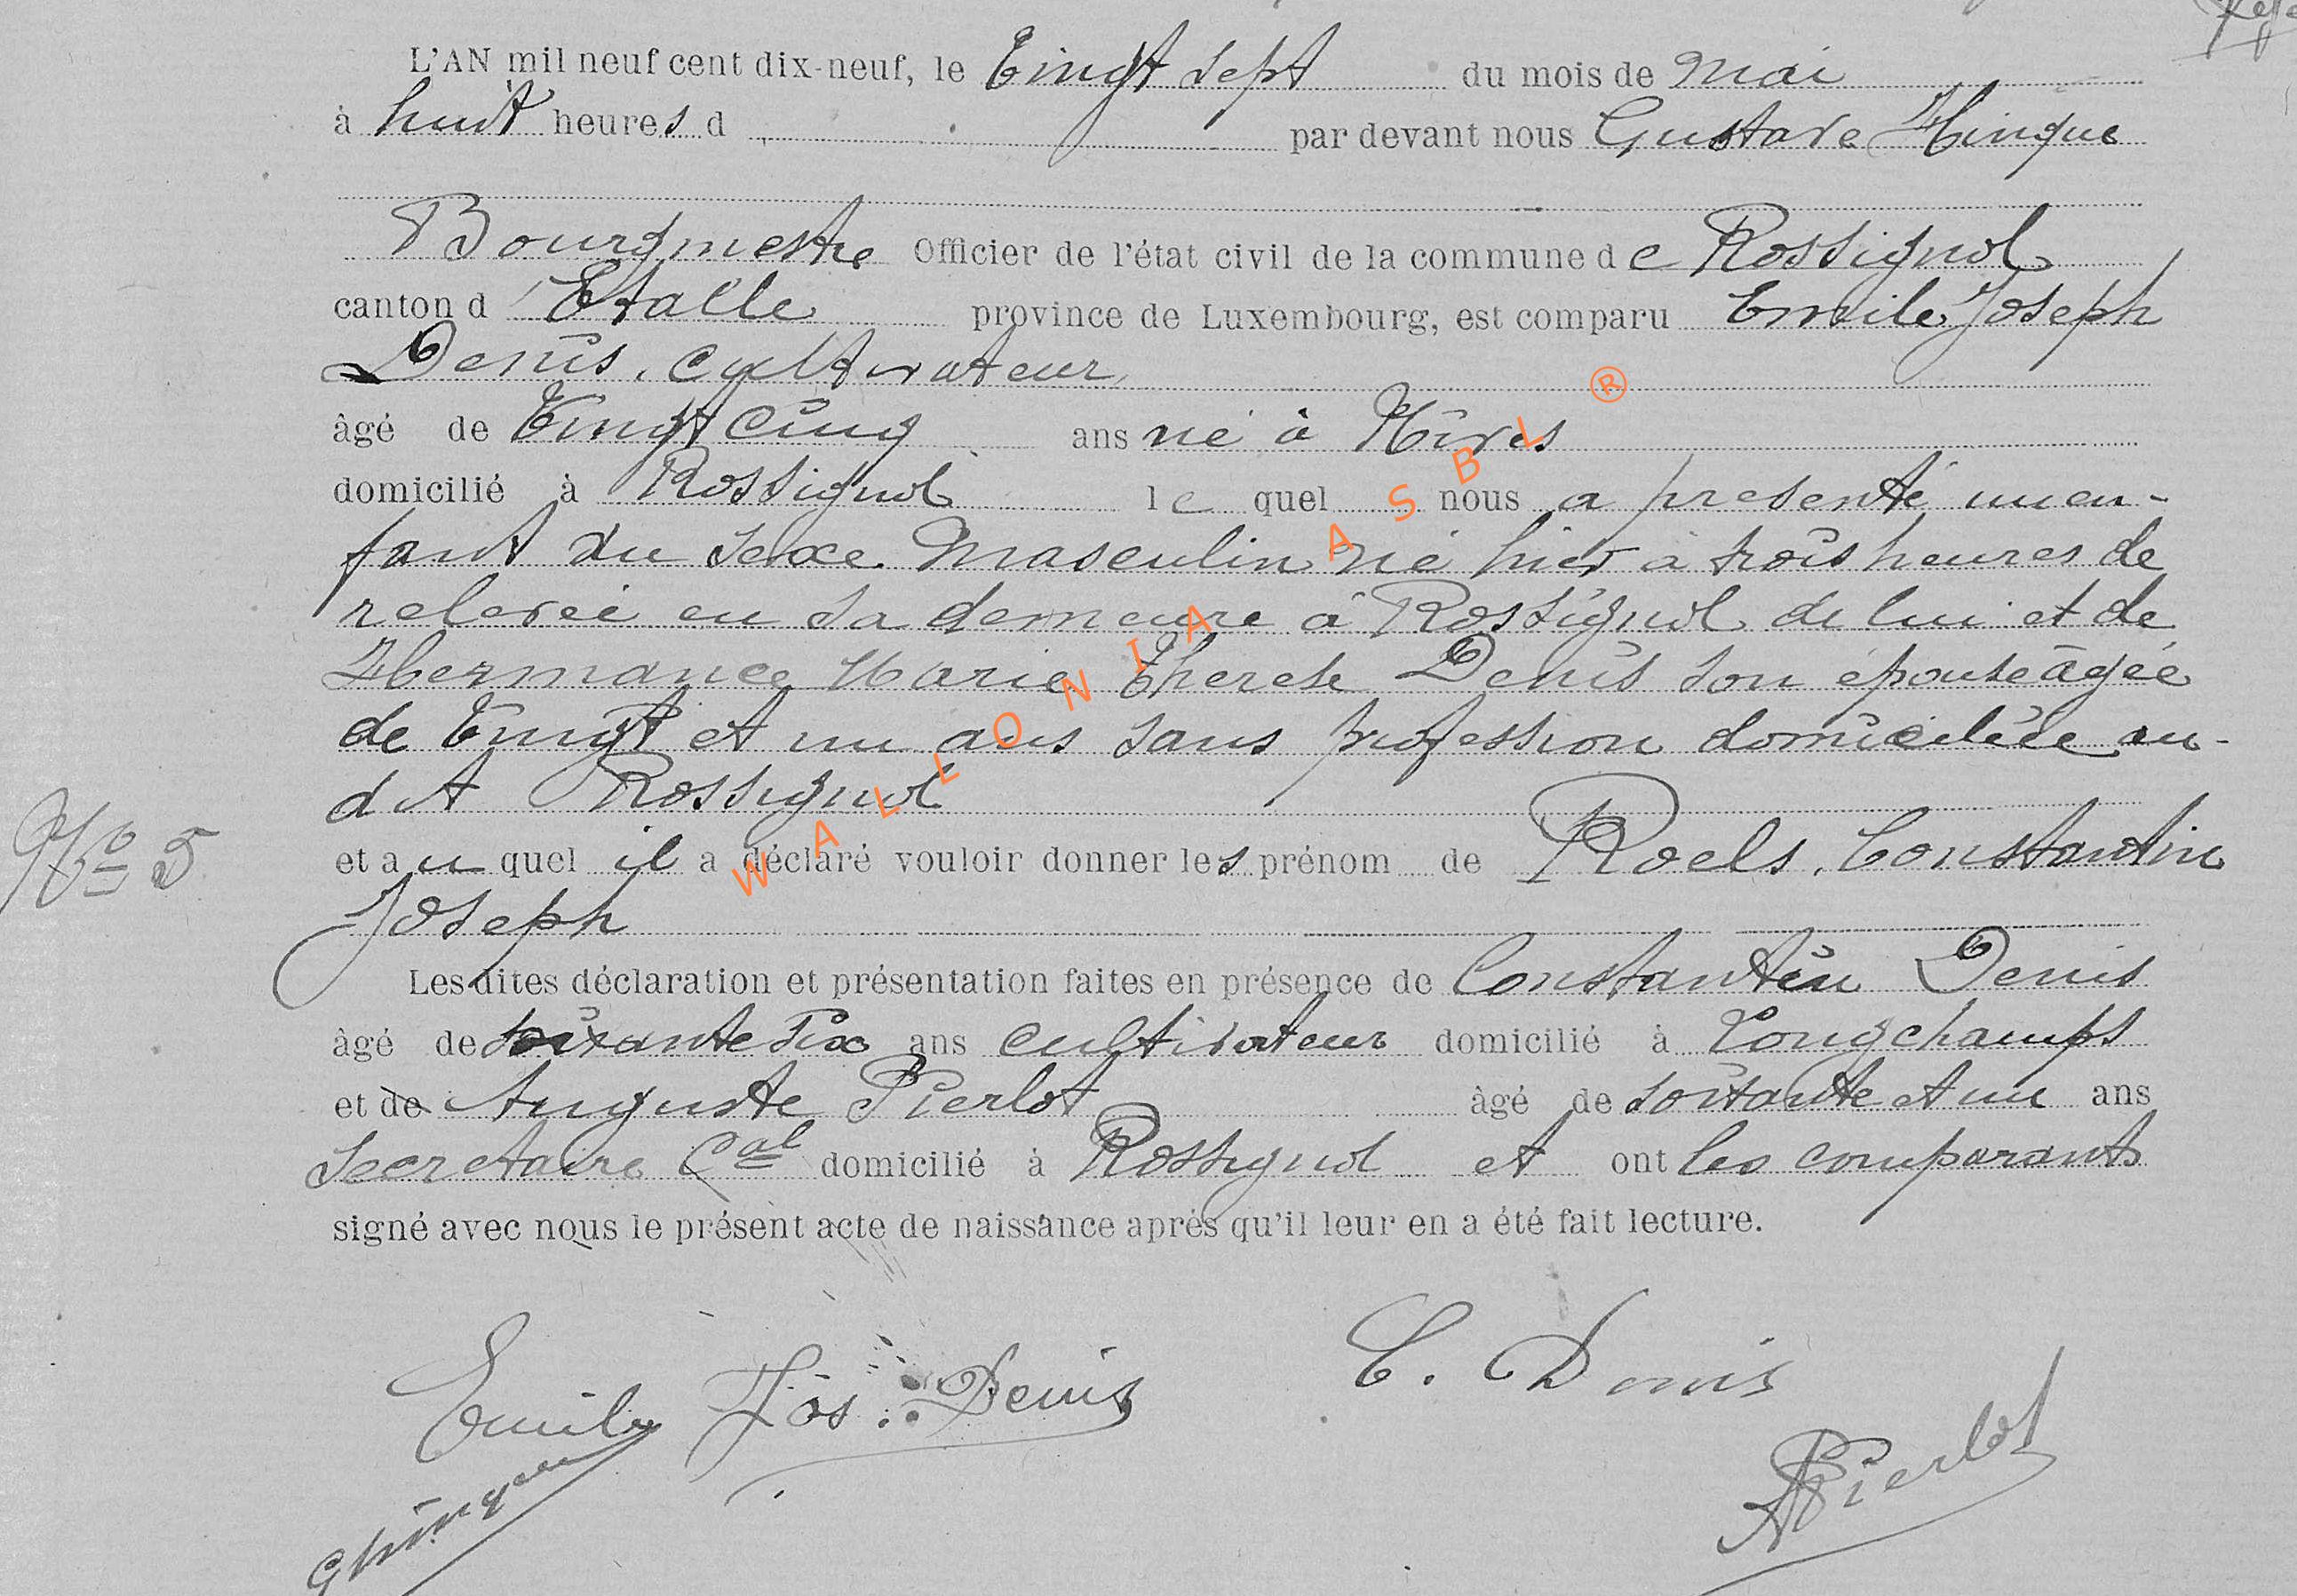 L'AN mil neuf cent dix-neuf, le Vingt sept du mois de Mai
à huit heures d par devant nous Gustave Hinque
Bourgmestre Officier de l'état civil de la commune de Rossignol
canton d'Etalle province de Luxembourg, est comparu Emile Joseph
Denis, cultivateur,
âgé de Vingt cinq ans né à Hives
domicilié à Rossignol lequel nous a présenté un en-
fant du sexe Masculin né hier à trois heures de
relevée en sa demeure à Rossignol de lui et de
Hermance Marie Therese Denis son épouse âgée
de Vingt et un ans sans profession domiciliée au-
dit Rossignol
No 5
et auquel il a déclaré vouloir donner les prénom de Roels, Constantin
Joseph
Les dites déclaration et présentation faites en présence de Constantin Denis
âgé de soixante six ans cultivateur domicilié à Longchamps
et de Auguste Pierlot âgé de soixante et un ans
Secretaire Cal domicilié à Rossignol et ont les comparants
signé avec nous le présent acte de naissance après qu'il leur en a été fait lecture.
Emile Jos. Denis
C. Denis
GHinque
APierlot
WALLONIA ASBL ®